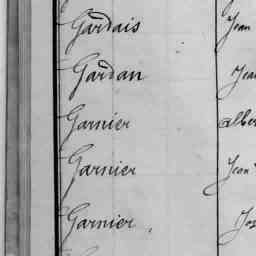 Gardais Jean
Gardan Jea
Garnier Albe
Garnier Jean
Garnier, Jos